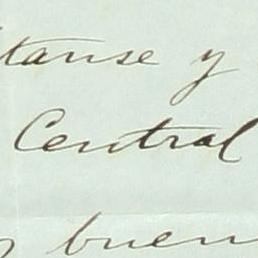 tanse y
Central
buen